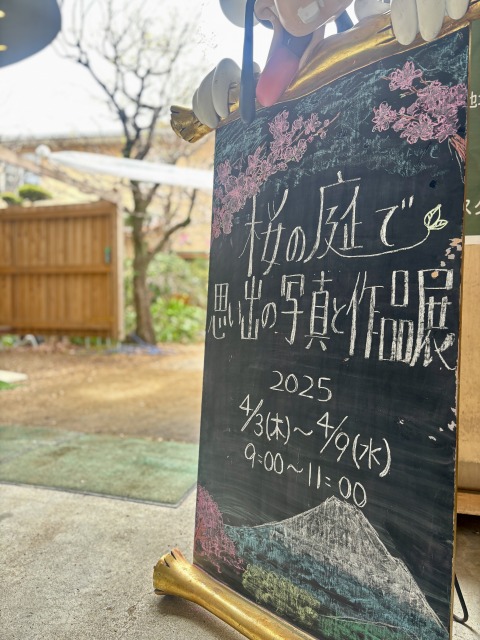 桜の庭で
思い出の写真と作品展
2025
4/3(木)～4/9(水)
9:00～11:00